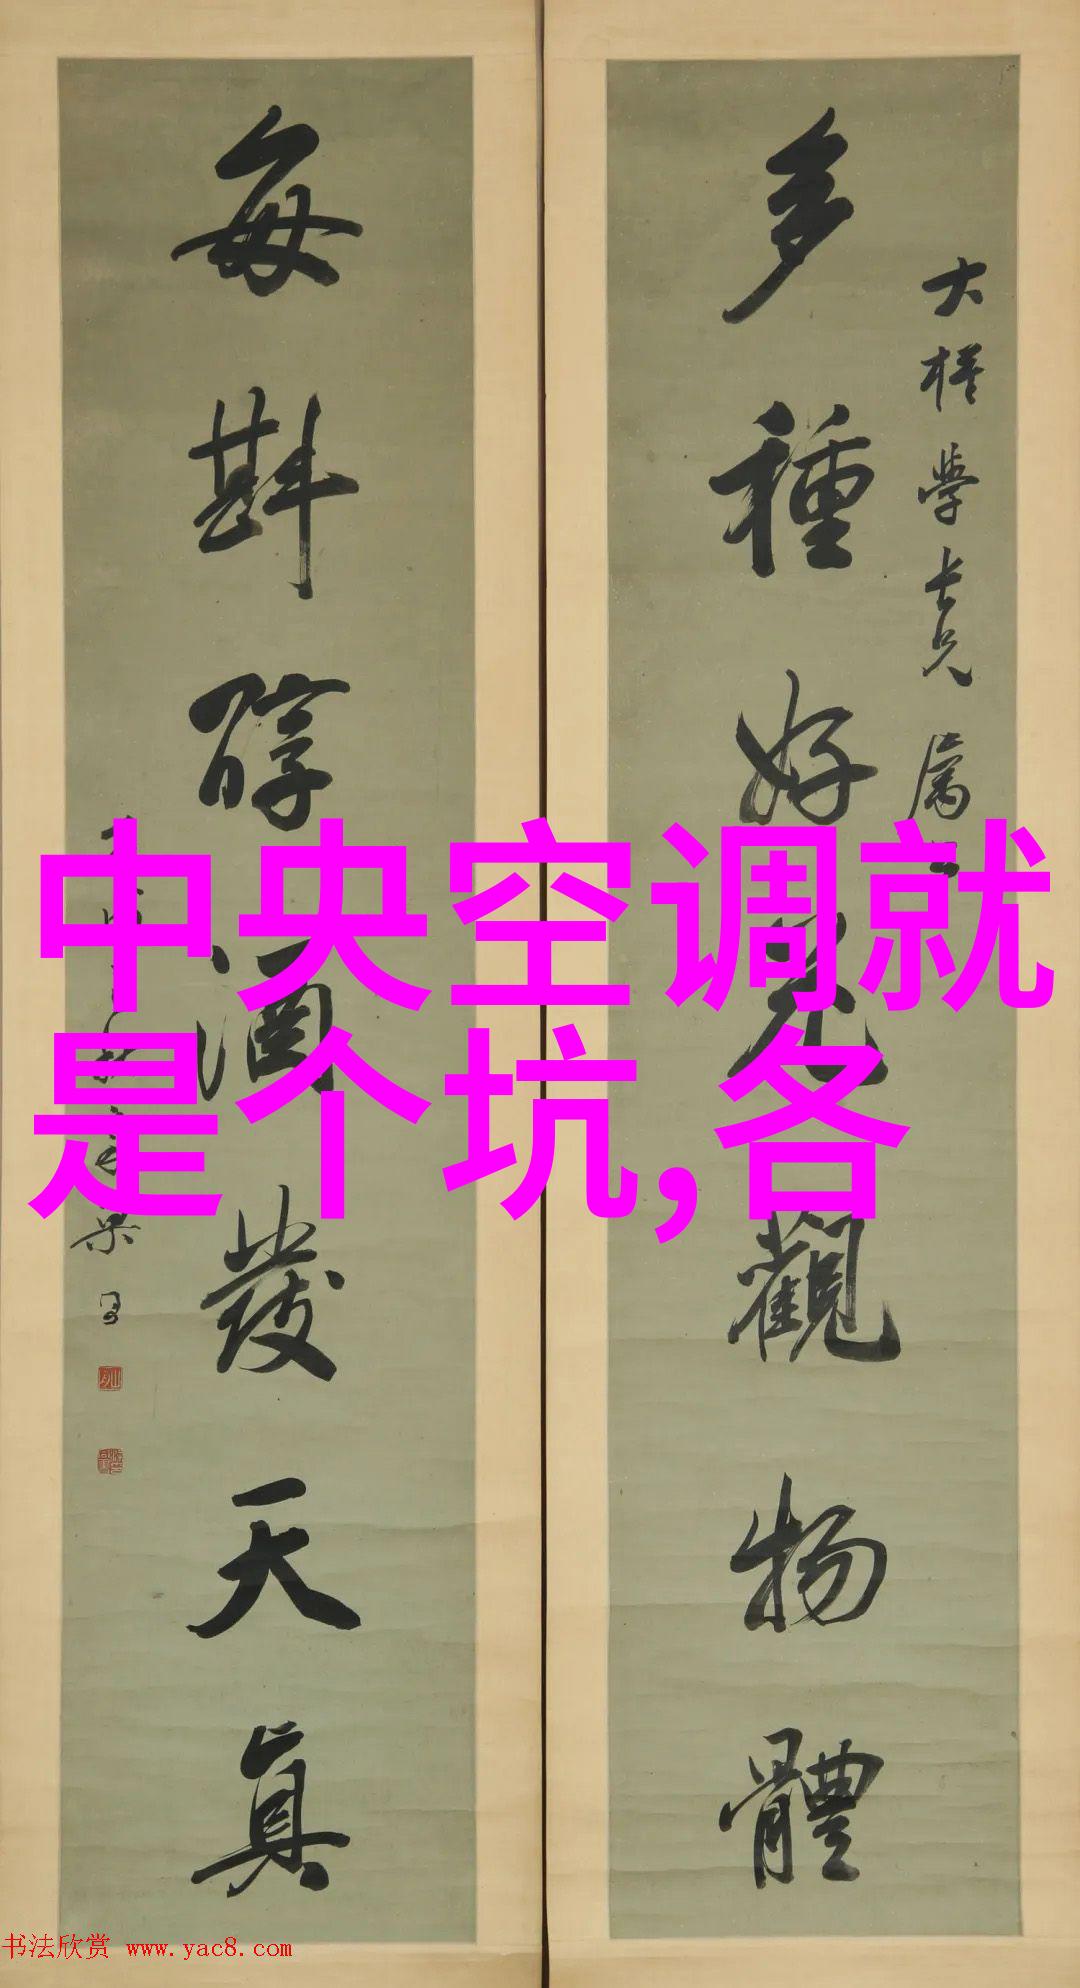 大樸學長兄屬
多種好花觀物體
每斟醇酒發天真
梁
中央空调就
是个坑,各
书法欣赏 www.yac8.com